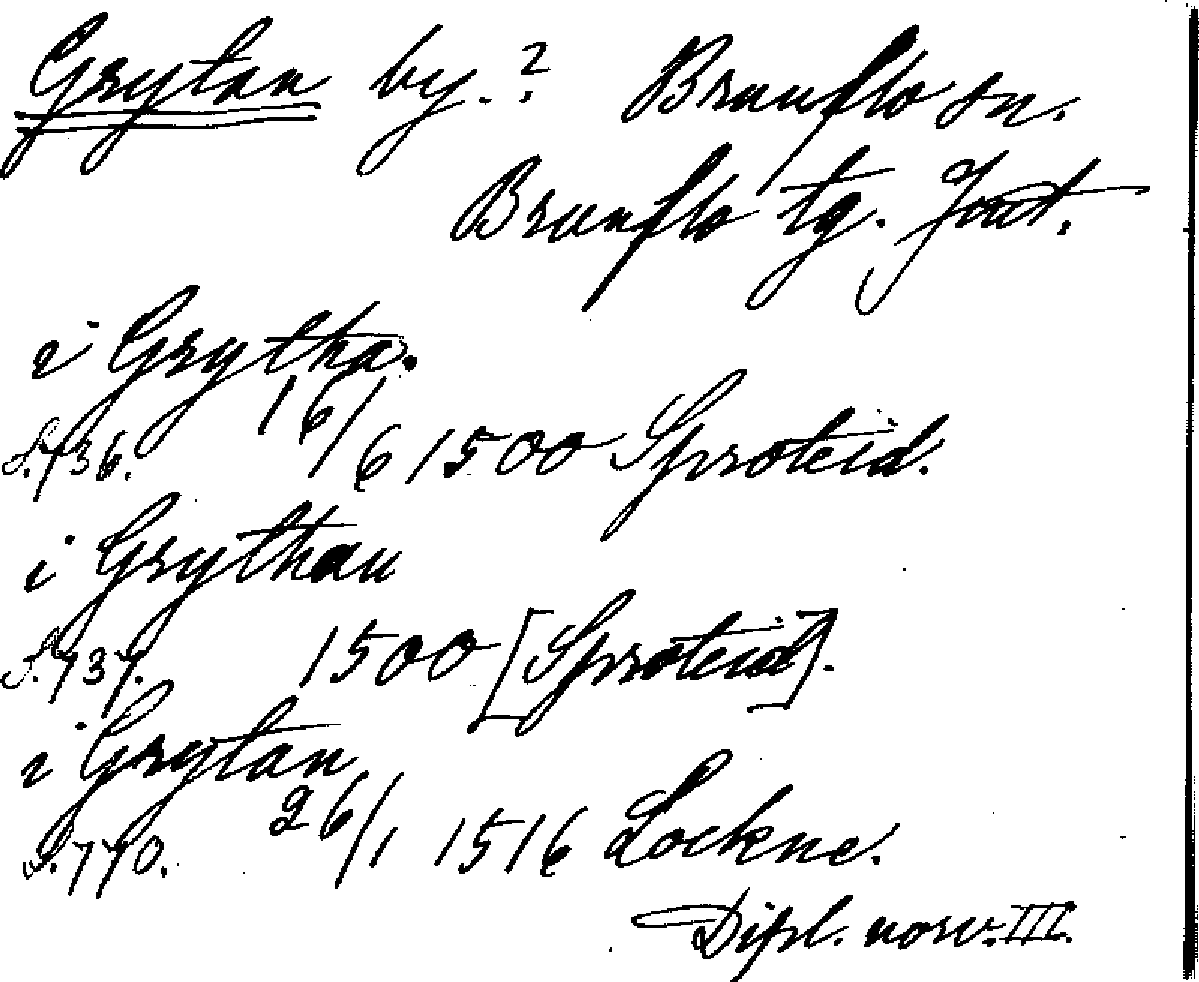 Grytan by.? Brunflo sn.
Brunflo tg. Jämt.
i Grytha.
S. 736. 16/6 1500 Sproteid.
i Grythan
S. 737. 1500 [Sproteid].
i Grytan
S. 770. 26/1 1516 Lockne.
Dipl. norv. III.